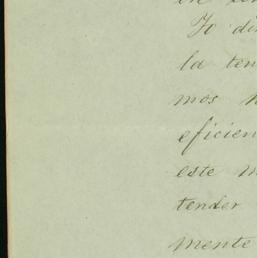 Yo di
la ten
mos
eficien
este m
tender
mente